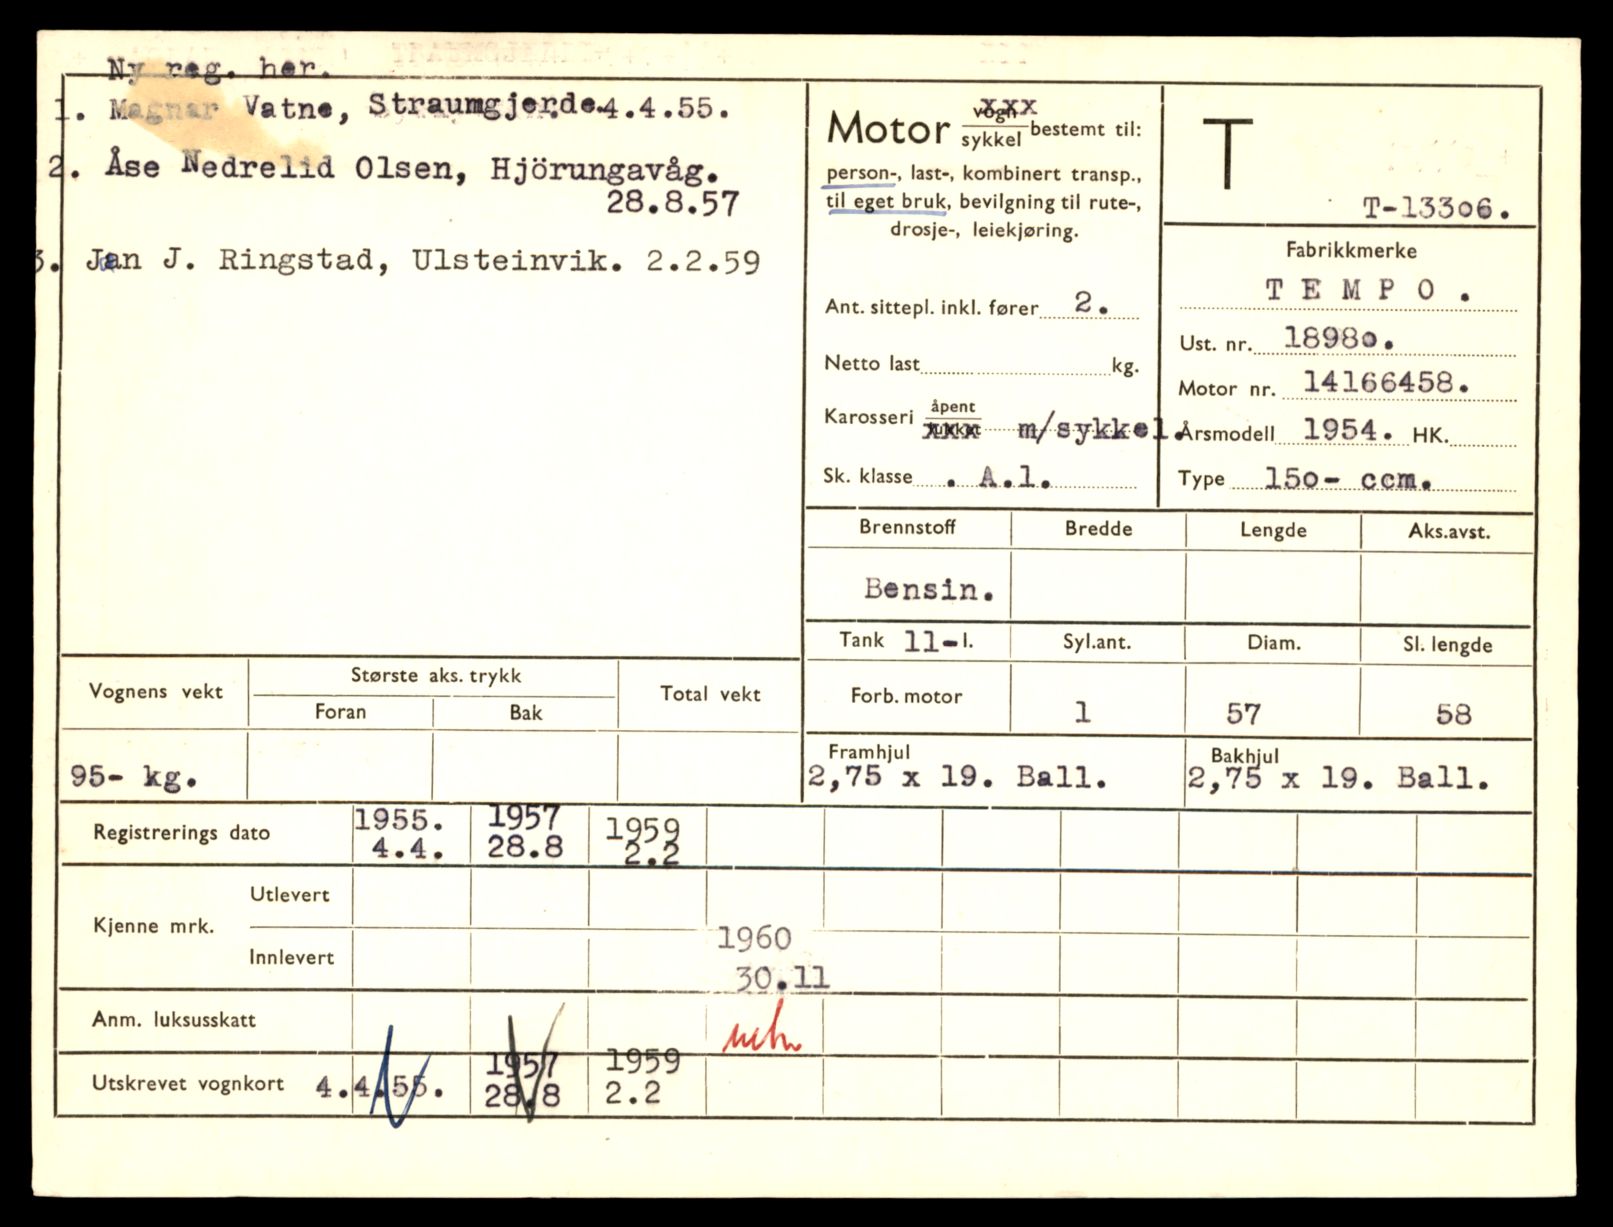 Ny reg. her.
1. Magnar Vatne, Straumgjerde 4.4.55.
2. Åse Nedrelid Olsen, Hjörungavåg.
28.8.57
3. Jan J. Ringstad, Ulsteinvik. 2.2.59
Motor vogn xxx
sykkel bestemt til:
person-, last-, kombinert transp.,
til eget bruk, bevilgning til rute-,
drosje-, leiekjøring.
Ant. sittepl. inkl. fører 2.
Netto last kg.
Karosseri åpent
lukket xxx m/sykkel.
Sk. klasse . A.1.
T
T-13306.
Fabrikkmerke
T E M P O .
Ust. nr. 18980.
Motor nr. 14166458.
Årsmodell 1954. HK.
Type 150- ccm.
Brennstoff Bredde Lengde Aks.avst.
Bensin.
Tank 11-l. Syl.ant. Diam. Sl. lengde
Forb. motor 1 57 58
Framhjul Bakhjul
2,75 x 19. Ball. 2,75 x 19. Ball.
Vognens vekt Største aks. trykk Total vekt
Foran Bak
95- kg.
Registrerings dato 1955. 1957 1959
4.4. 28.8 2.2
Kjenne mrk. Utlevert
Innlevert 1960
30.11
Anm. luksusskatt
Utskrevet vognkort 4.4.55. 1957 1959
28.8 2.2